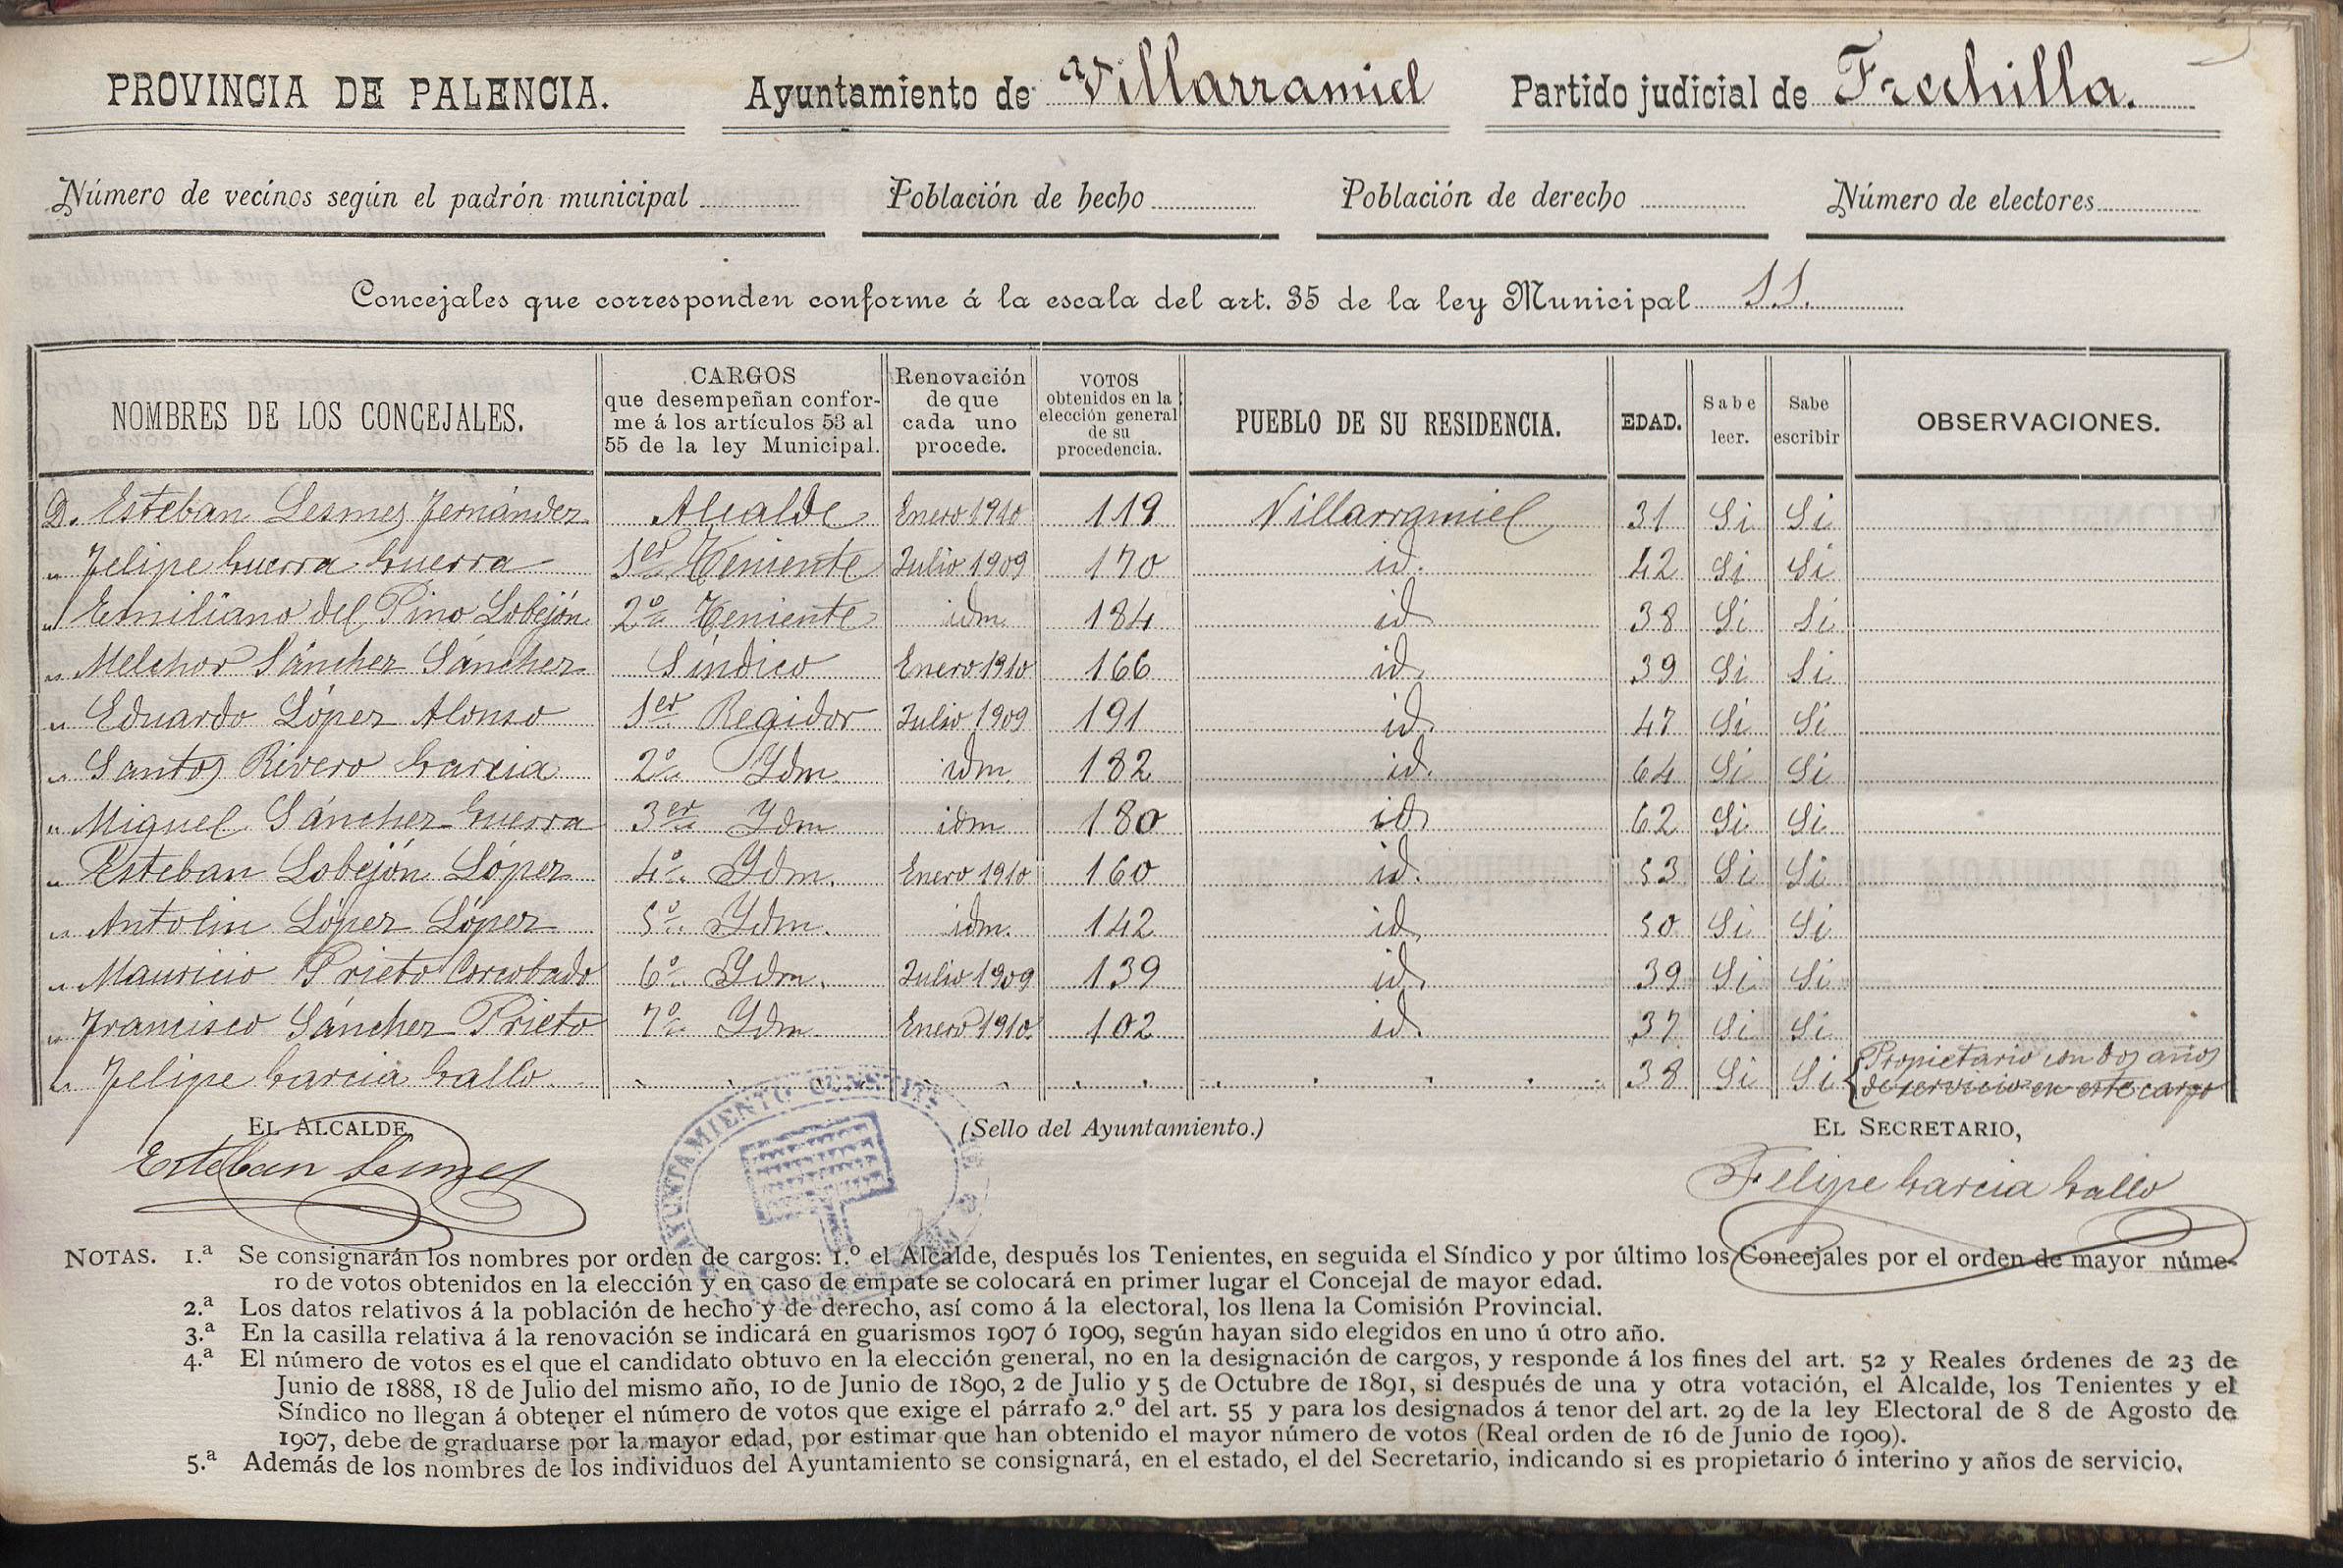 PROVINCIA DE PALENCIA. Ayuntamiento de Villarramiel Partido judicial de Frechilla.
Número de vecinos según el padrón municipal Población de hecho Población de derecho Número de electores
Concejales que corresponden conforme á la escala del art. 35 de la ley Municipal 11.
NOMBRES DE LOS CONCEJALES. CARGOS que desempeñan conforme á los artículos 53 al 55 de la ley Municipal. Renovación de que cada uno procede. VOTOS obtenidos en la elección general de su procedencia. PUEBLO DE SU RESIDENCIA. EDAD. Sabe leer. Sabe escribir OBSERVACIONES.
D. Esteban Lesmes Fernández Alcalde Enero 1910 119 Villarramiel 31 Si Si
" Felipe Guerra Guerra 1er Teniente Julio 1909 170 id. 42 Si Si
" Emiliano del Pino Lobejón 2º Teniente idm 184 id 38 Si Si
" Melchor Sánchez Sánchez Síndico Enero 1910 166 id 39 Si Si
" Eduardo López Alonso 1er Regidor Julio 1909 191 id 47 Si Si
" Santos Rivero Garcia 2º Ydm idm 182 id. 64 Si Si
" Miguel Sánchez Guerra 3er Ydm idm 180 id 62 Si Si
" Esteban Lobejón López 4º Ydm. Enero 1910 160 id. 53 Si Si
" Antolin López López 5º Ydm. idm. 142 id 50 Si Si
" Mauricio Prieto Corcobado 6º Ydm. Julio 1909 139 id 39 Si Si
" Francisco Sánchez Prieto 7º Ydm Enero 1910 102 id. 37 Si Si
" Felipe Garcia Gallo 38 Si Si Propietario con dos años
de servicio en este cargo
EL ALCALDE, (Sello del Ayuntamiento.) EL SECRETARIO,
Esteban Lesmes AYUNTAMIENTO Felipe Garcia Gallo
NOTAS. 1.ª Se consignarán los nombres por orden de cargos: 1.º el Alcalde, después los Tenientes, en seguida el Síndico y por último los Concejales por el orden de mayor núme-
ro de votos obtenidos en la elección y en caso de empate se colocará en primer lugar el Concejal de mayor edad.
2.ª Los datos relativos á la población de hecho y de derecho, así como á la electoral, los llena la Comisión Provincial.
3.ª En la casilla relativa á la renovación se indicará en guarismos 1907 ó 1909, según hayan sido elegidos en uno ú otro año.
4.ª El número de votos es el que el candidato obtuvo en la elección general, no en la designación de cargos, y responde á los fines del art. 52 y Reales órdenes de 23 de
Junio de 1888, 18 de Julio del mismo año, 10 de Junio de 1890, 2 de Julio y 5 de Octubre de 1891, si después de una y otra votación, el Alcalde, los Tenientes y el
Síndico no llegan á obtener el número de votos que exige el párrafo 2.º del art. 55 y para los designados á tenor del art. 29 de la ley Electoral de 8 de Agosto de
1907, debe de graduarse por la mayor edad, por estimar que han obtenido el mayor número de votos (Real orden de 16 de Junio de 1909).
5.ª Además de los nombres de los individuos del Ayuntamiento se consignará, en el estado, el del Secretario, indicando si es propietario ó interino y años de servicio.